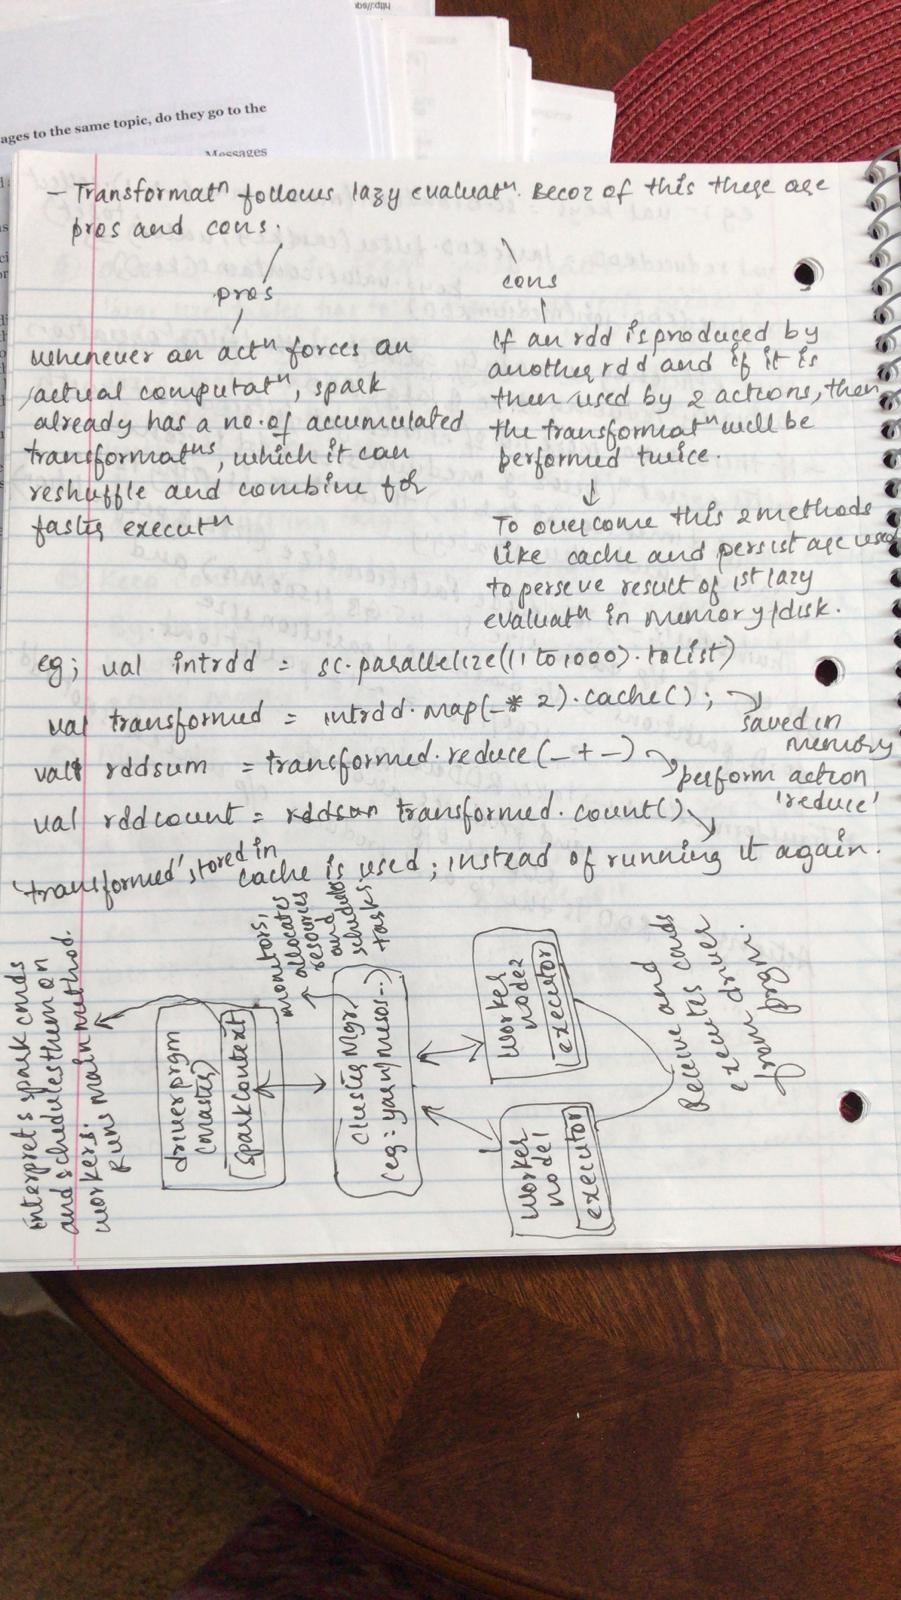 http://sq
ages to the same topic, do they go to the
Messages
- Transformatⁿ follows lazy evaluatⁿ. Becoz of this these are
pros and cons.
pros
whenever an actⁿ forces an
actual computatⁿ, spark
already has a no. of accumulated
transformatⁿˢ, which it can
reshuffle and combine for
faster executⁿ
cons
If an rdd is produced by
another rdd and if it is
then used by 2 actions, then
the transformatⁿ will be
performed twice.
To overcome this 2 methods
like cache and persist are used
to perseve result of 1st lazy
evaluatⁿ in memory/disk.
eg; val intrdd = sc.parallelize((1 to 1000).toList)
val transformed = intrdd.map(_* 2).cache();
saved in
memory
val rddsum = transformed.reduce(_+_)
perform action
'reduce'
val rddcount = transformed.count()
'transformed' stored in
cache is used; instead of running it again.
interprets spark cmds
and schedules them on
workers.
Runs main method.
driver prgm
(master)
sparkcontext
monitors,
allocates
resources
and
schedules
tasks
Cluster Mgr
(eg: yarn/mesos..)
worker
node2
executor
worker
node1
executor
Receive and
executes cmds
from driver
prgm.